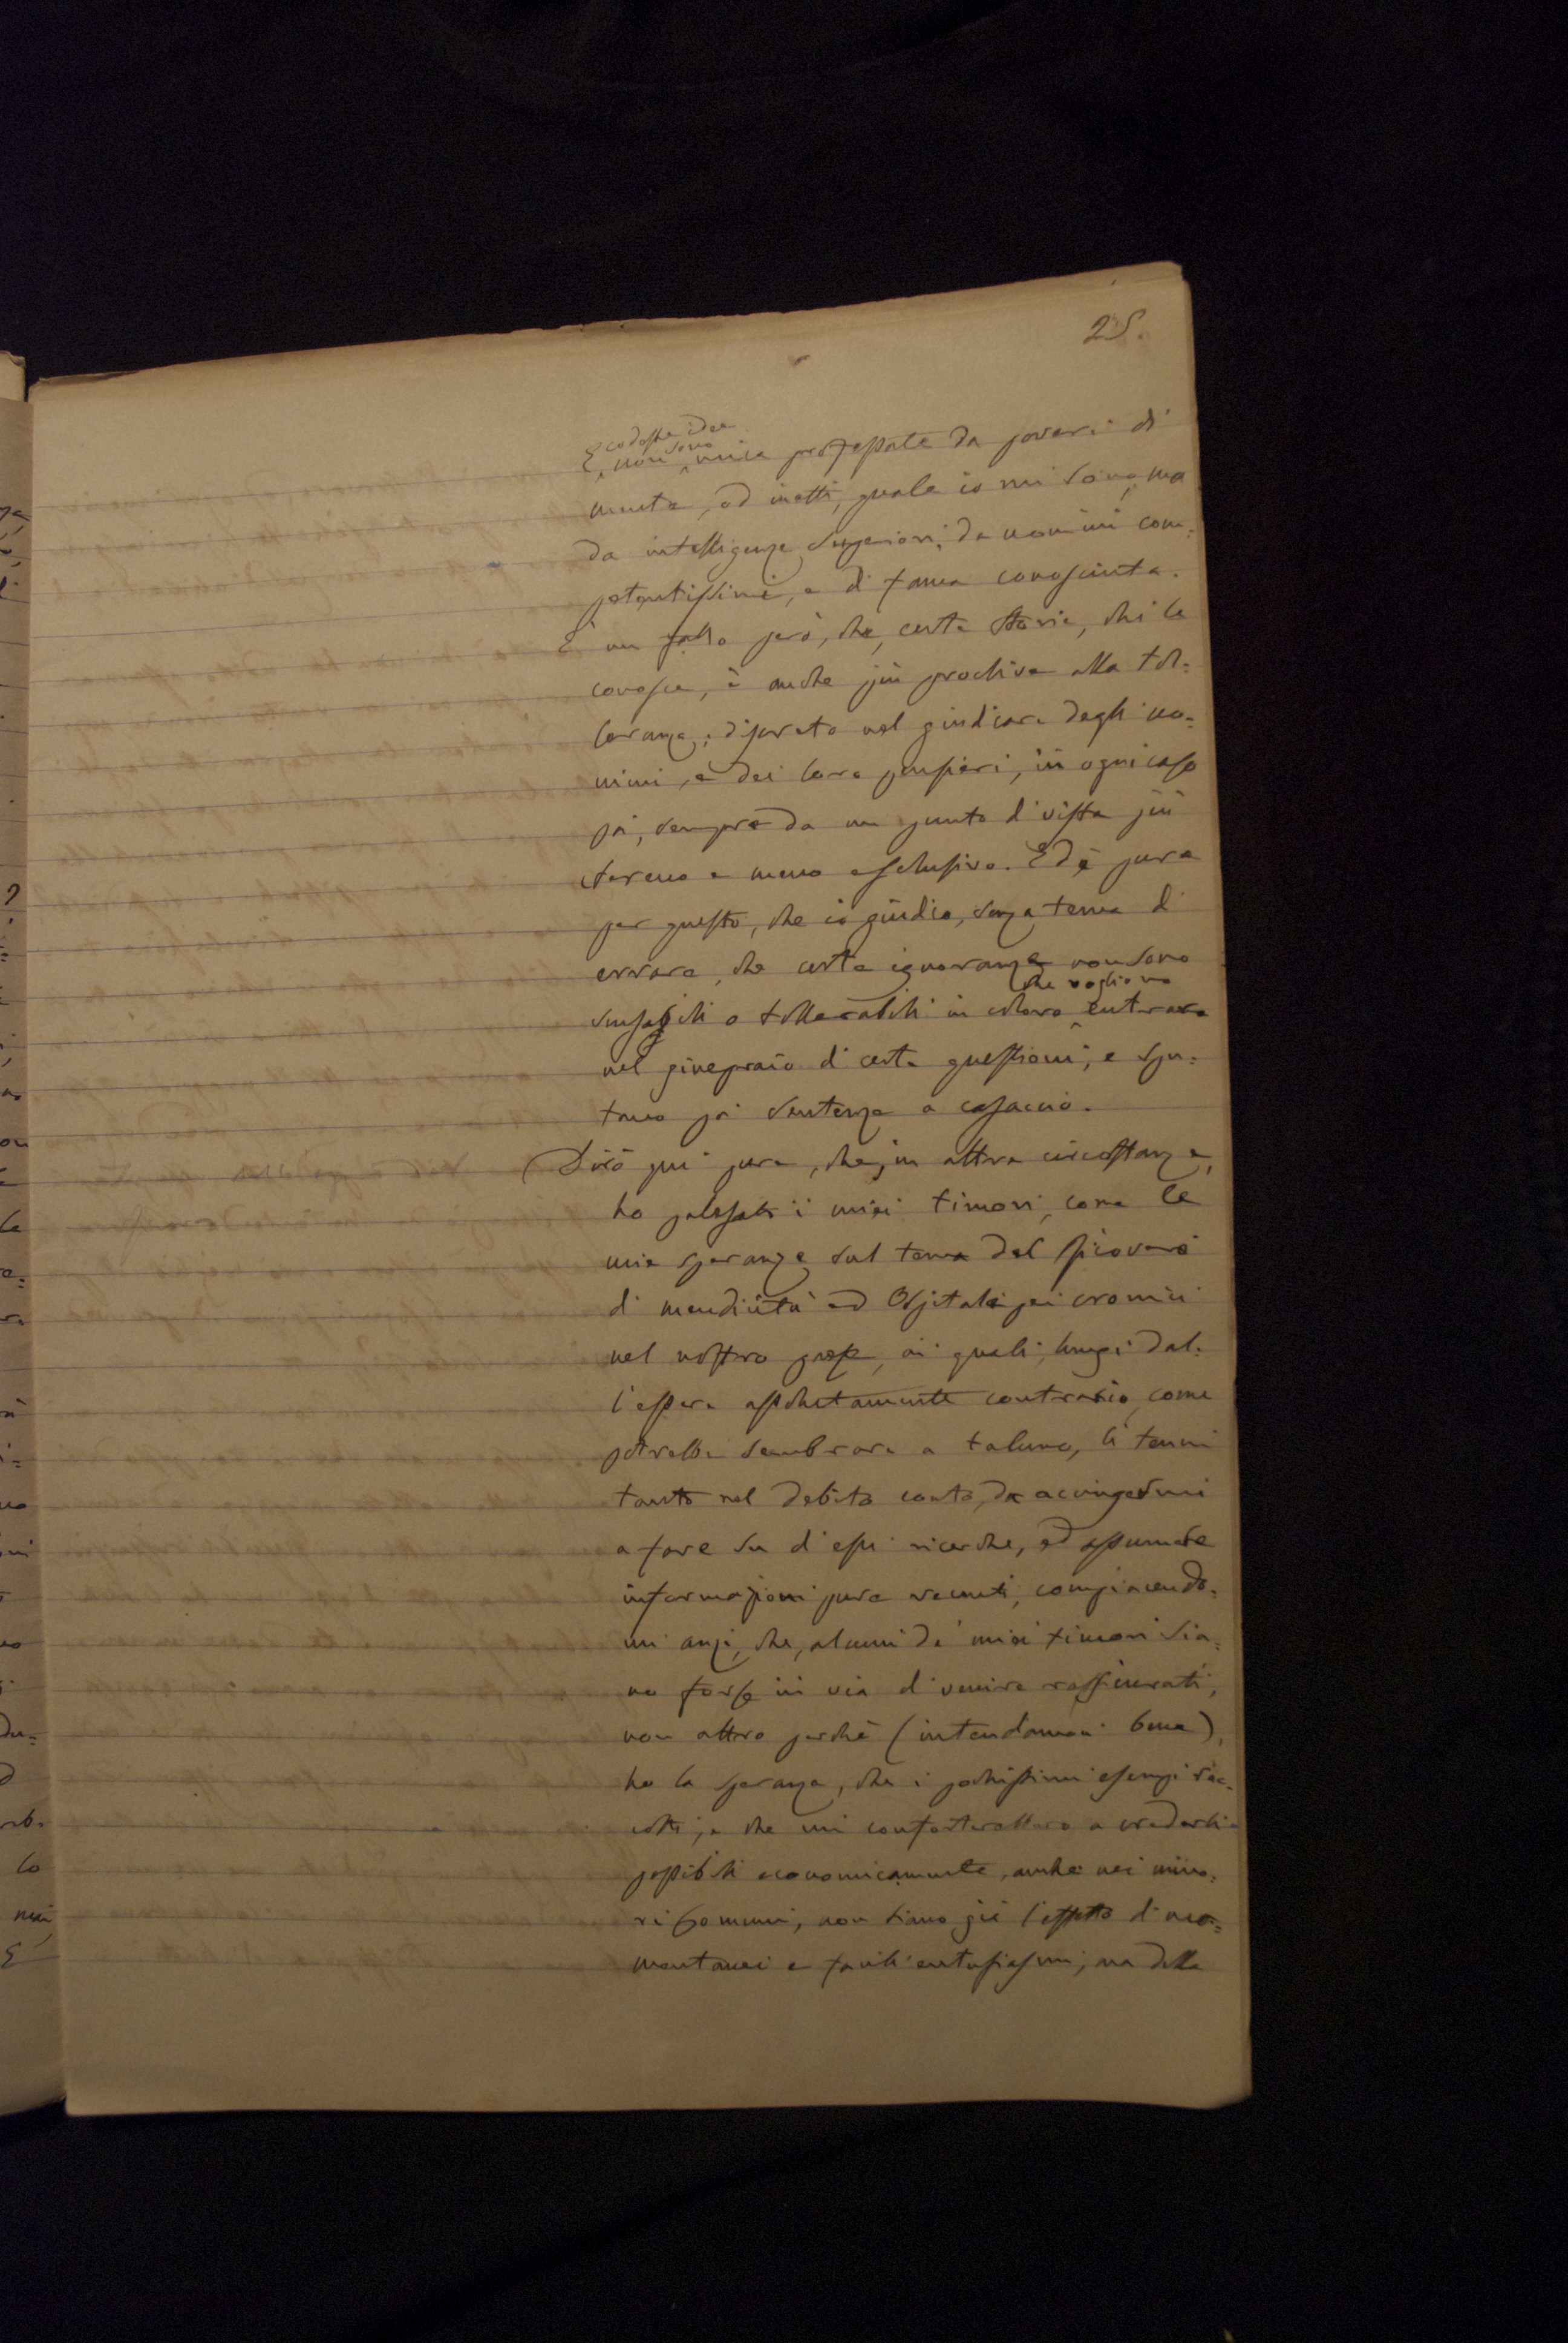 25.
codeste idee
sono
E, non mica professate da poveri di
mente, od inetti, quale io mi sono, ma
da intelligenze superiori, da uomini com=
petentissimi, e di fama conosciuta.
È un fatto però, che, certe storie, chi le
conosce, è anche più proclive alla tol=
leranza; disparato nel giudicare degli uo=
mini, e dei loro pensieri, in ogni caso
poi, sempre da un punto di vista più
sereno e meno esclusivo. Ed è pure
per questo, che io giudico, senza tema di
errare, che certe ignoranze non sono
che vogliono
scusabili o tollerabili in coloro entrare
nel ginepraio di certe questioni, e spu=
tano poi sentenze a casaccio.
Dirò qui pure, che, in altre circostanze,
ho palesato i miei timori, come le
mie speranze sul tema del Ricovero
di mendicità ed Ospitale pei cronici
nel nostro paese, ai quali, lungi dal=
l'essere assolutamente contrario, come
potrebbe sembrare a taluno, li tenni
tanto nel debito conto, da accingermi
a fare su di essi ricerche, ed assumere
informazioni pure recenti, compiacendo=
mi anzi, che, alcuni de' miei timori sia=
no forse in via di venire rassicurati,
non altro perchè (intendiamoci bene),
ho la speranza, che i pochissimi esempi rac=
colti, e che mi conforterebbero a crederli
possibili economicamente, anche nei mino=
ri Comuni, non siano già l'effetto di mo=
mentanei e facili entusiasmi, ma della